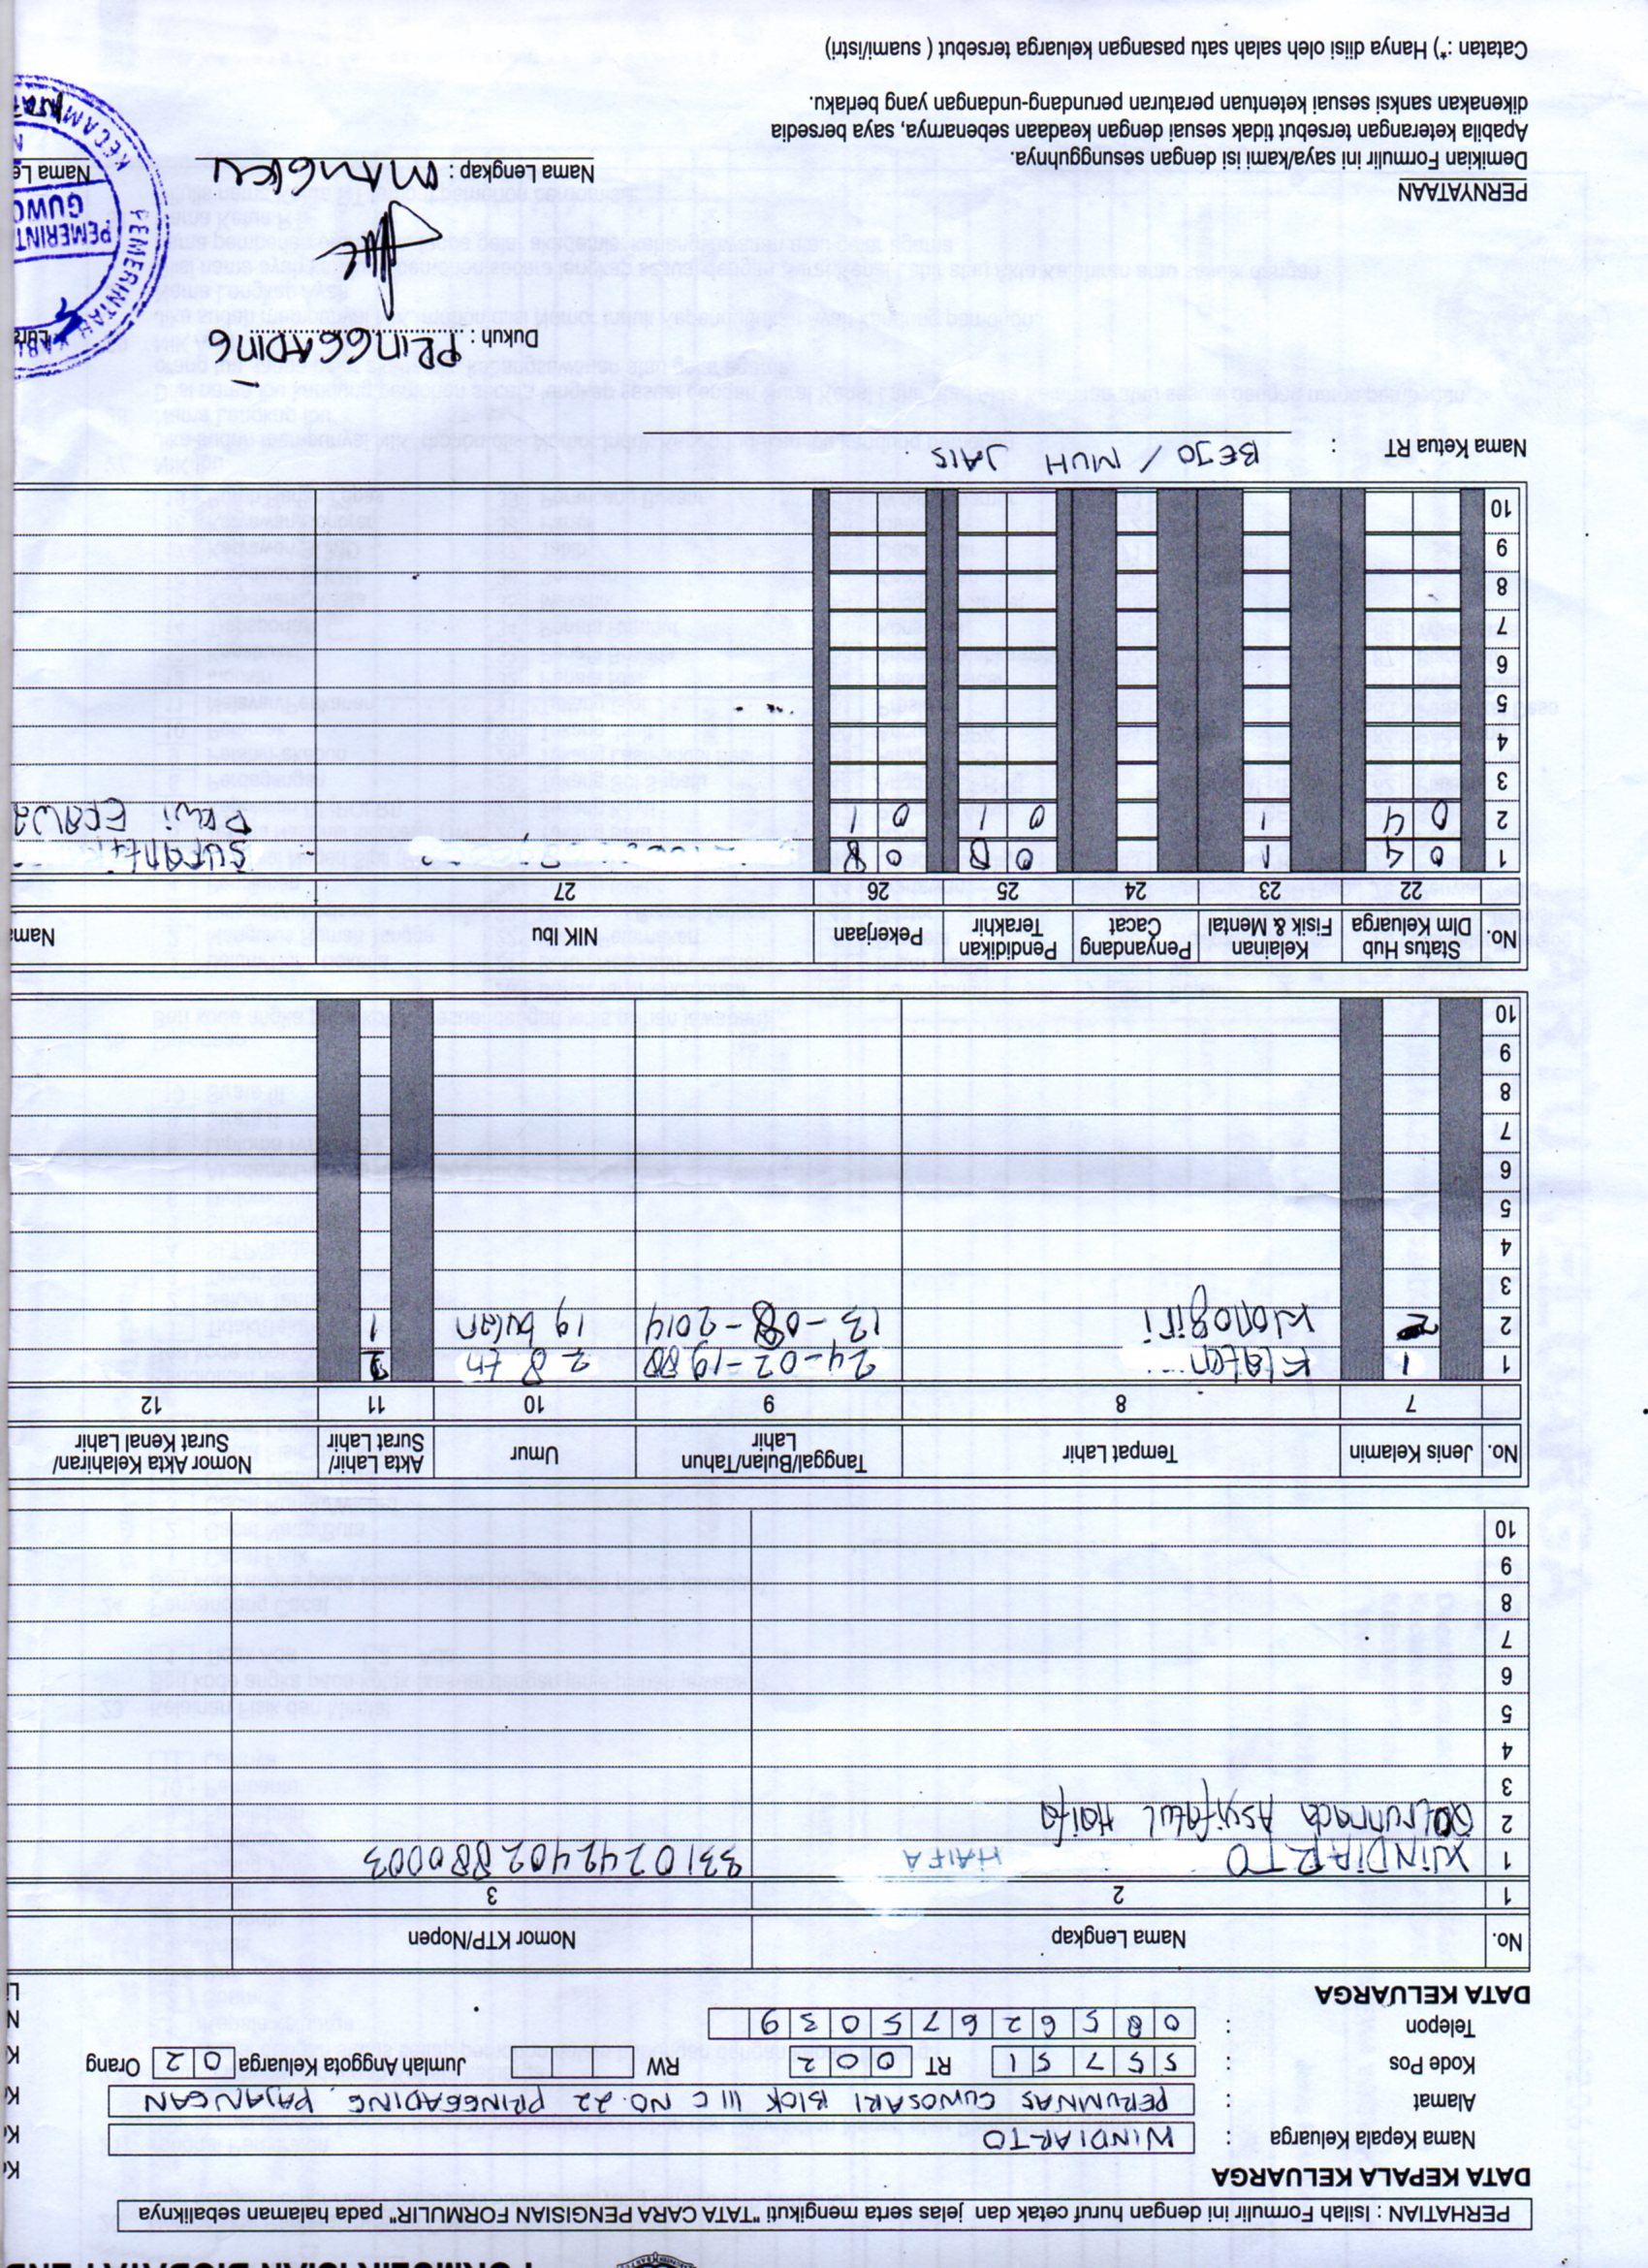 PERHATIAN : Isilah Formulir ini dengan huruf cetak dan jelas serta mengikuti "TATA CARA PENGISIAN FORMULIR" pada halaman sebaliknya
DATA KEPALA KELUARGA
Nama Kepala Keluarga : WINDIARTO
Alamat : PERUMNAS GUWOSARI BLOK III C NO. 22 PRINGGADING, PAJANGAN
Kode Pos : 55751 RT 002 RW Jumlah Anggota Keluarga 02 Orang
Telepon : 085626675039
DATA KELUARGA
No. Nama Lengkap Nomor KTP/Nopen
1 2 3
1 WINDIARTO HAIFA 3310242402880003
2 Asyifatul Haifa
3
4
5
6
7
8
9
10
No. Jenis Kelamin Tempat Lahir Tanggal/Bulan/Tahun Lahir Umur Akta Lahir/ Surat Lahir Nomor Akta Kelahiran/ Surat Kenal Lahir
7 8 9 10 11 12
1 1 Klaten 24-02-1988 28 th
2 2 Wonogiri 13-08-2014 19 bulan 1
3
4
5
6
7
8
9
10
No. Status Hub Dlm Keluarga Kelainan Fisik & Mental Penyandang Cacat Pendidikan Terakhir Pekerjaan NIK Ibu Nama
22 23 24 25 26 27
1 04 1 08 08
2 04 1 01 01 Dewi
3
4
5
6
7
8
9
10
Nama Ketua RT : BEJO / MUH JAIS
Dukuh : PRINGGADING
PERNYATAAN
Demikian Formulir ini saya/kami isi dengan sesungguhnya
Apabila keterangan tersebut tidak sesuai dengan keadaan sebenarnya, saya bersedia
dikenakan sanksi sesuai ketentuan peraturan perundang-undangan yang berlaku.
Nama Lengkap :
PEMERINTAH
KECAMA
PEMERINT
GUWO
Catatan : *) Hanya diisi oleh salah satu pasangan keluarga tersebut ( suami/istri)